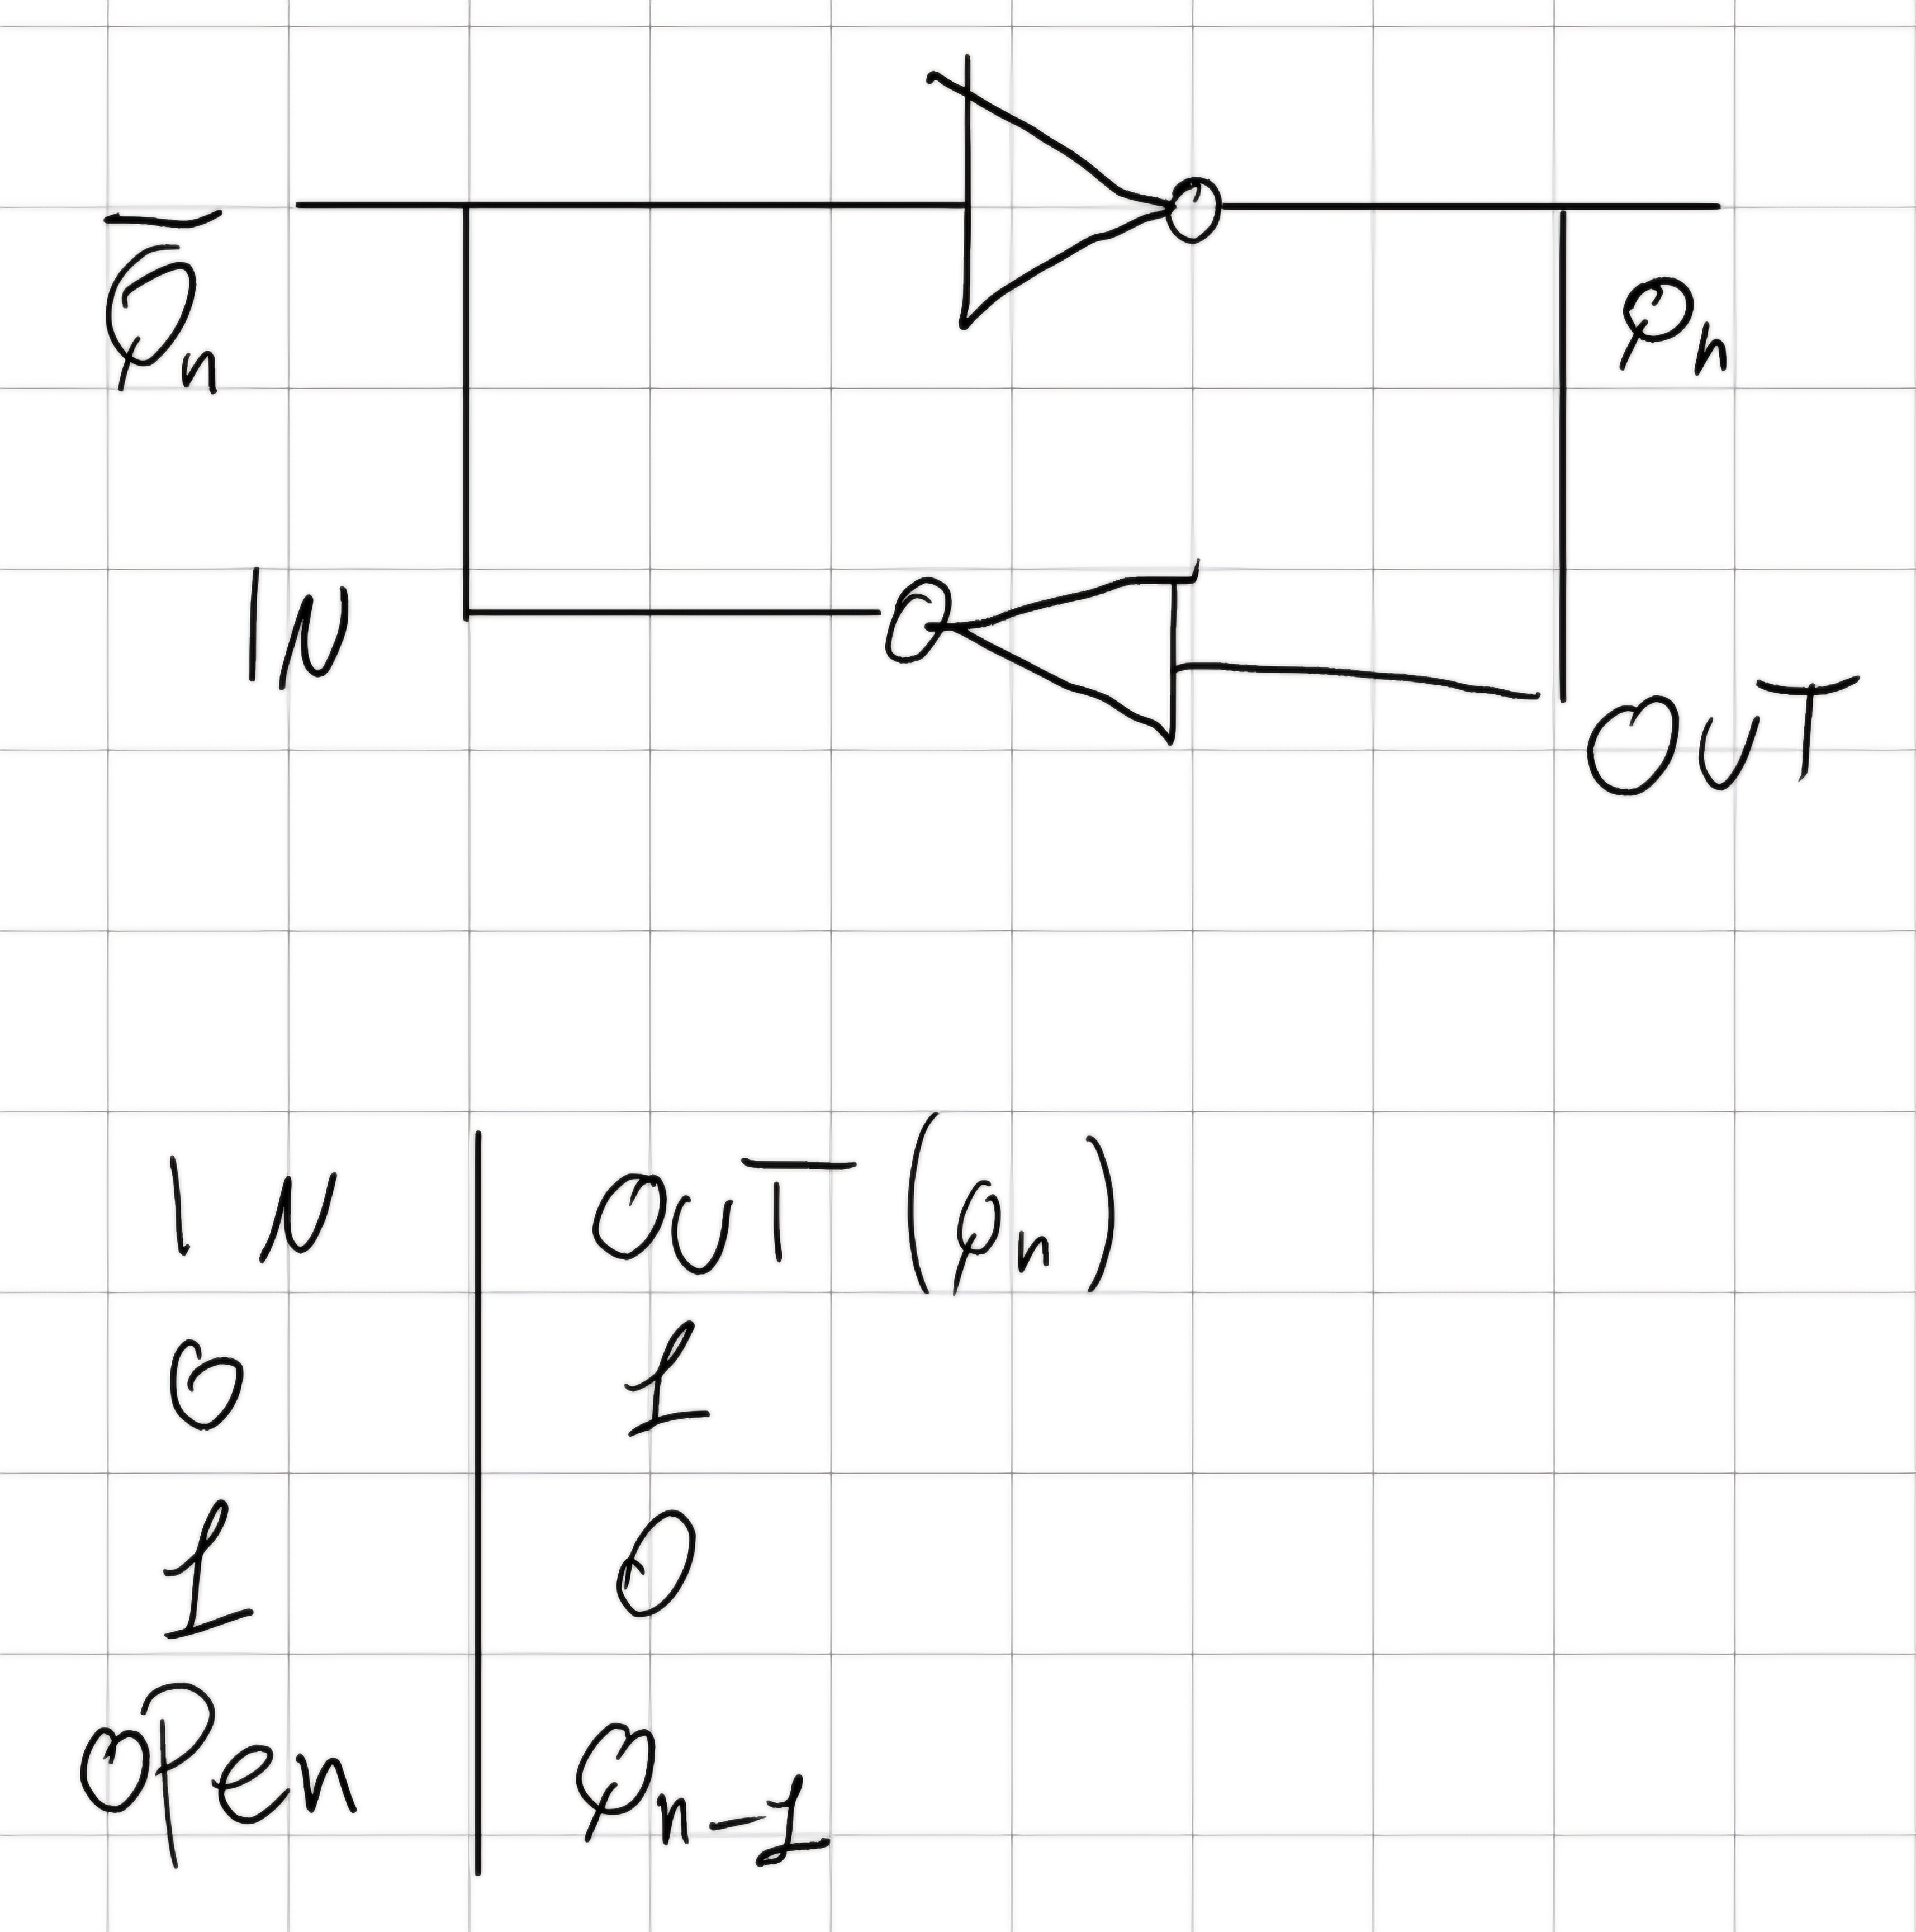 Q̅n Qn
IN OUT
IN OUT (Qn)
0 1
1 0
OPen Qn-1